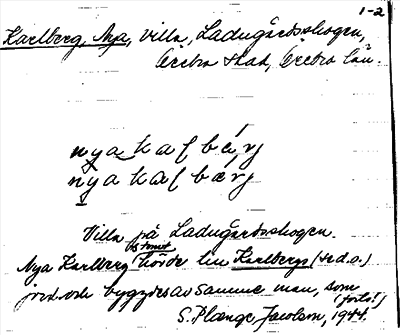 1-2
Karlberg, Nya, villa, Ladugårdsskogen,
Örebro stad, Örebro län.
nya kaļ bérj
nya kaļ bærj
Villa på Ladugårdsskogen.
Nya Karlberg hörde till Karlbergs (se d.o.)
jord och bygdes av samme man, som
(forts!)
S. Plænge Jacobson, 1944.